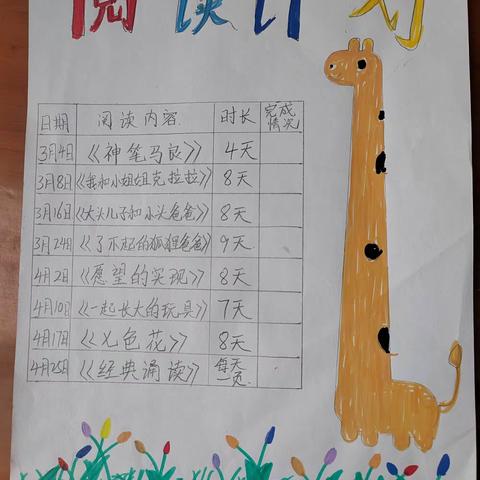 阅读计划
日期 阅读内容 时长 完成情况
3月4日 《神笔马良》 4天
3月8日 《我和小姐姐克拉拉》 8天
3月16日 《大头儿子和小头爸爸》 8天
3月24日 《了不起的狐狸爸爸》 9天
4月2日 《愿望的实现》 8天
4月10日 《一起长大的玩具》 7天
4月17日 《七色花》 8天
4月25日 《经典诵读》 每天一页